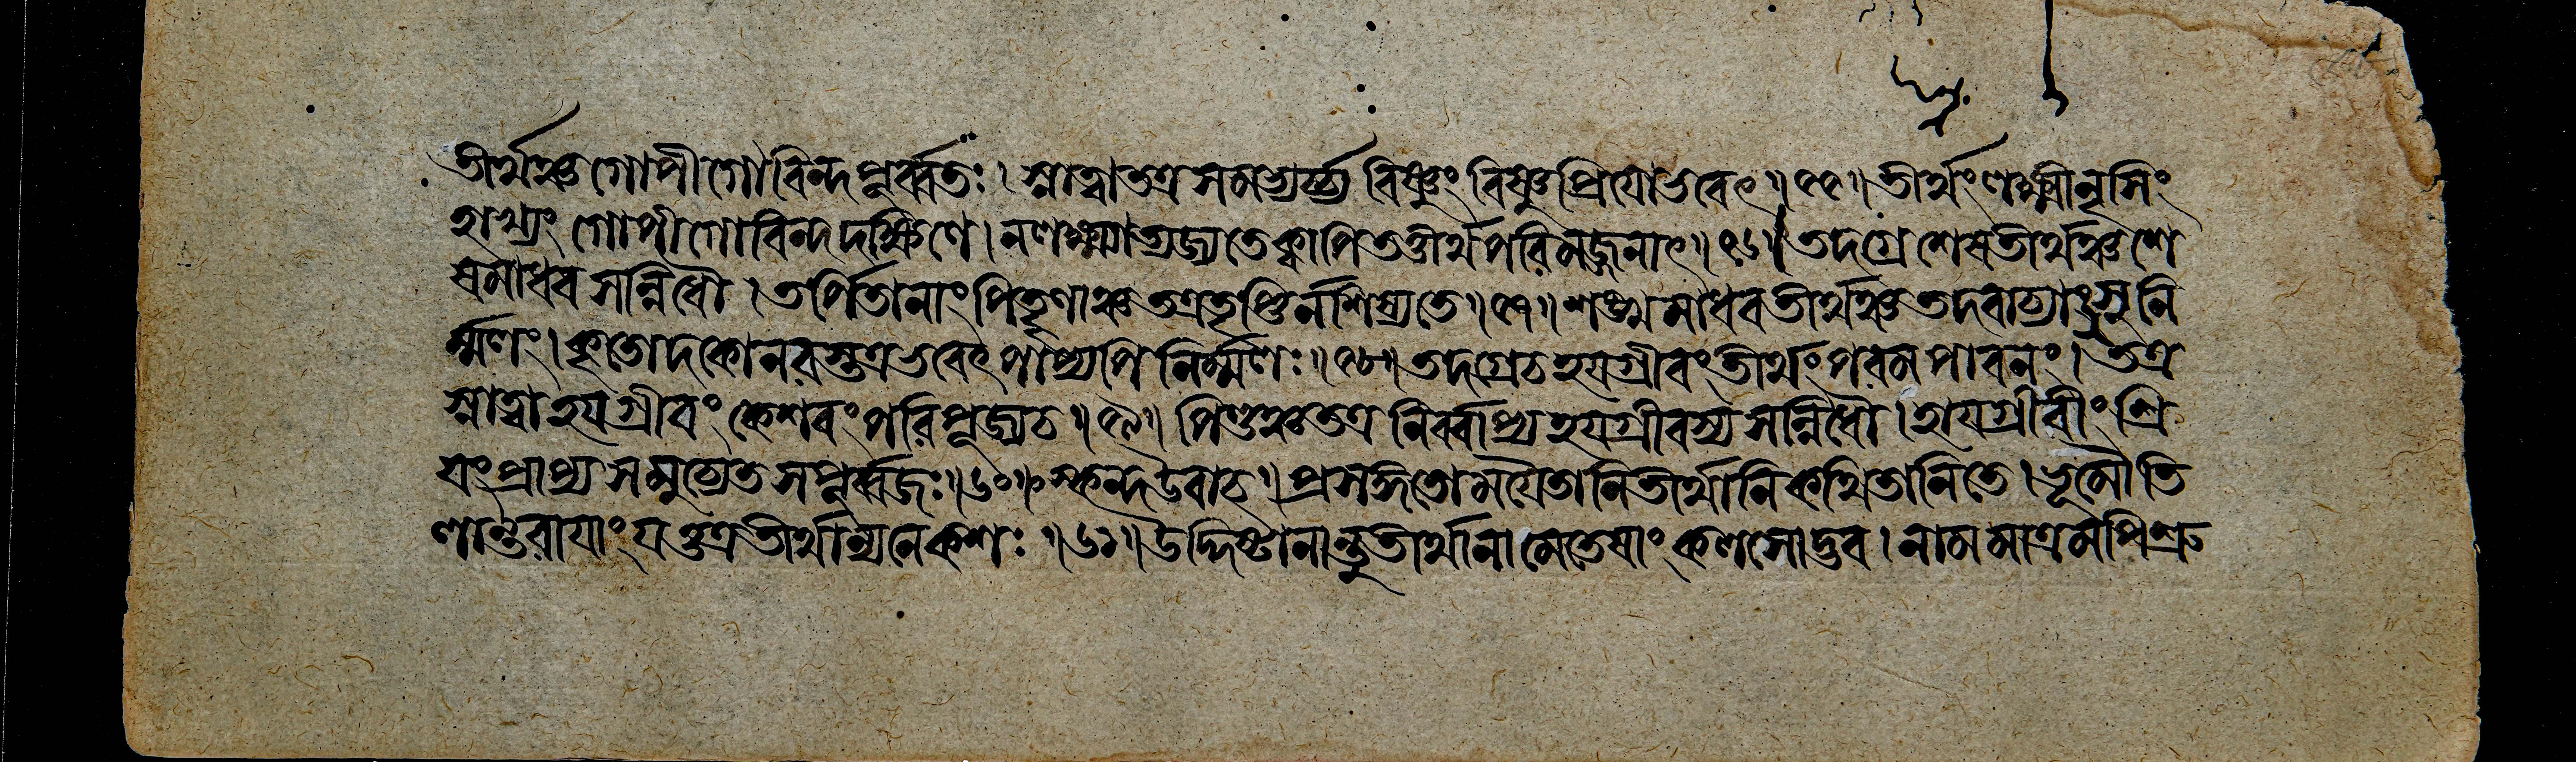 তীর্থঞ্চ গোপীগোবিন্দপূর্ব্বতঃ। স্নাত্বা তত্র সমভ্যর্চ্চ্য বিষ্ণুং বিষ্ণুপ্রিযো ভবেৎ॥৫৫॥ তীর্থং লক্ষ্মীনৃসিং
হাখ্যং গোপীগোবিন্দদক্ষিণে। ন লক্ষ্ম্যা ত্যজ্যতে ক্বাপি তত্তীর্থপরিমজ্জনাৎ॥৫৬॥ তদগ্রে শেষতীর্থঞ্চ শে
ষমাধবসন্নিধৌ। তর্পিতানাং পিতৄণাঞ্চ তত্র তৃপ্তির্ন শিষ্যতে॥৫৭॥ শঙ্খমাধবতীর্থঞ্চ তদবাচ্যাং সুনি
র্ম্মলং। কৃতোদকো নরস্তত্র ভবেৎ পাপ্যপি নির্ম্মলঃ॥৫৮॥ তদগ্রে চ হযগ্রীবং তীর্থং পরমপাবনং। তত্র
স্নাত্বা হযগ্রীবং কেশবং পরিপূজ্য চ॥৫৯॥ পিণ্ডঞ্চ তত্র নির্ব্বাপ্য হযগ্রীবস্য সন্নিধৌ। হাযগ্রীবীং শ্রি
যং প্রাপ্য স মুচ্যেত সপূর্ব্বজঃ॥৬০॥ স্কন্দ উবাচ॥ প্রসঙ্গতো মযৈতানি তীর্থানি কথিতানি তে। ভূমৌ তি
লান্তরাযাং যত্তত্র তীর্থান্যনেকশঃ॥৬১॥ উদ্দিষ্টানান্তু তীর্থানামেতেষাং কলসোদ্ভব। নামমাত্রমপি শ্রু